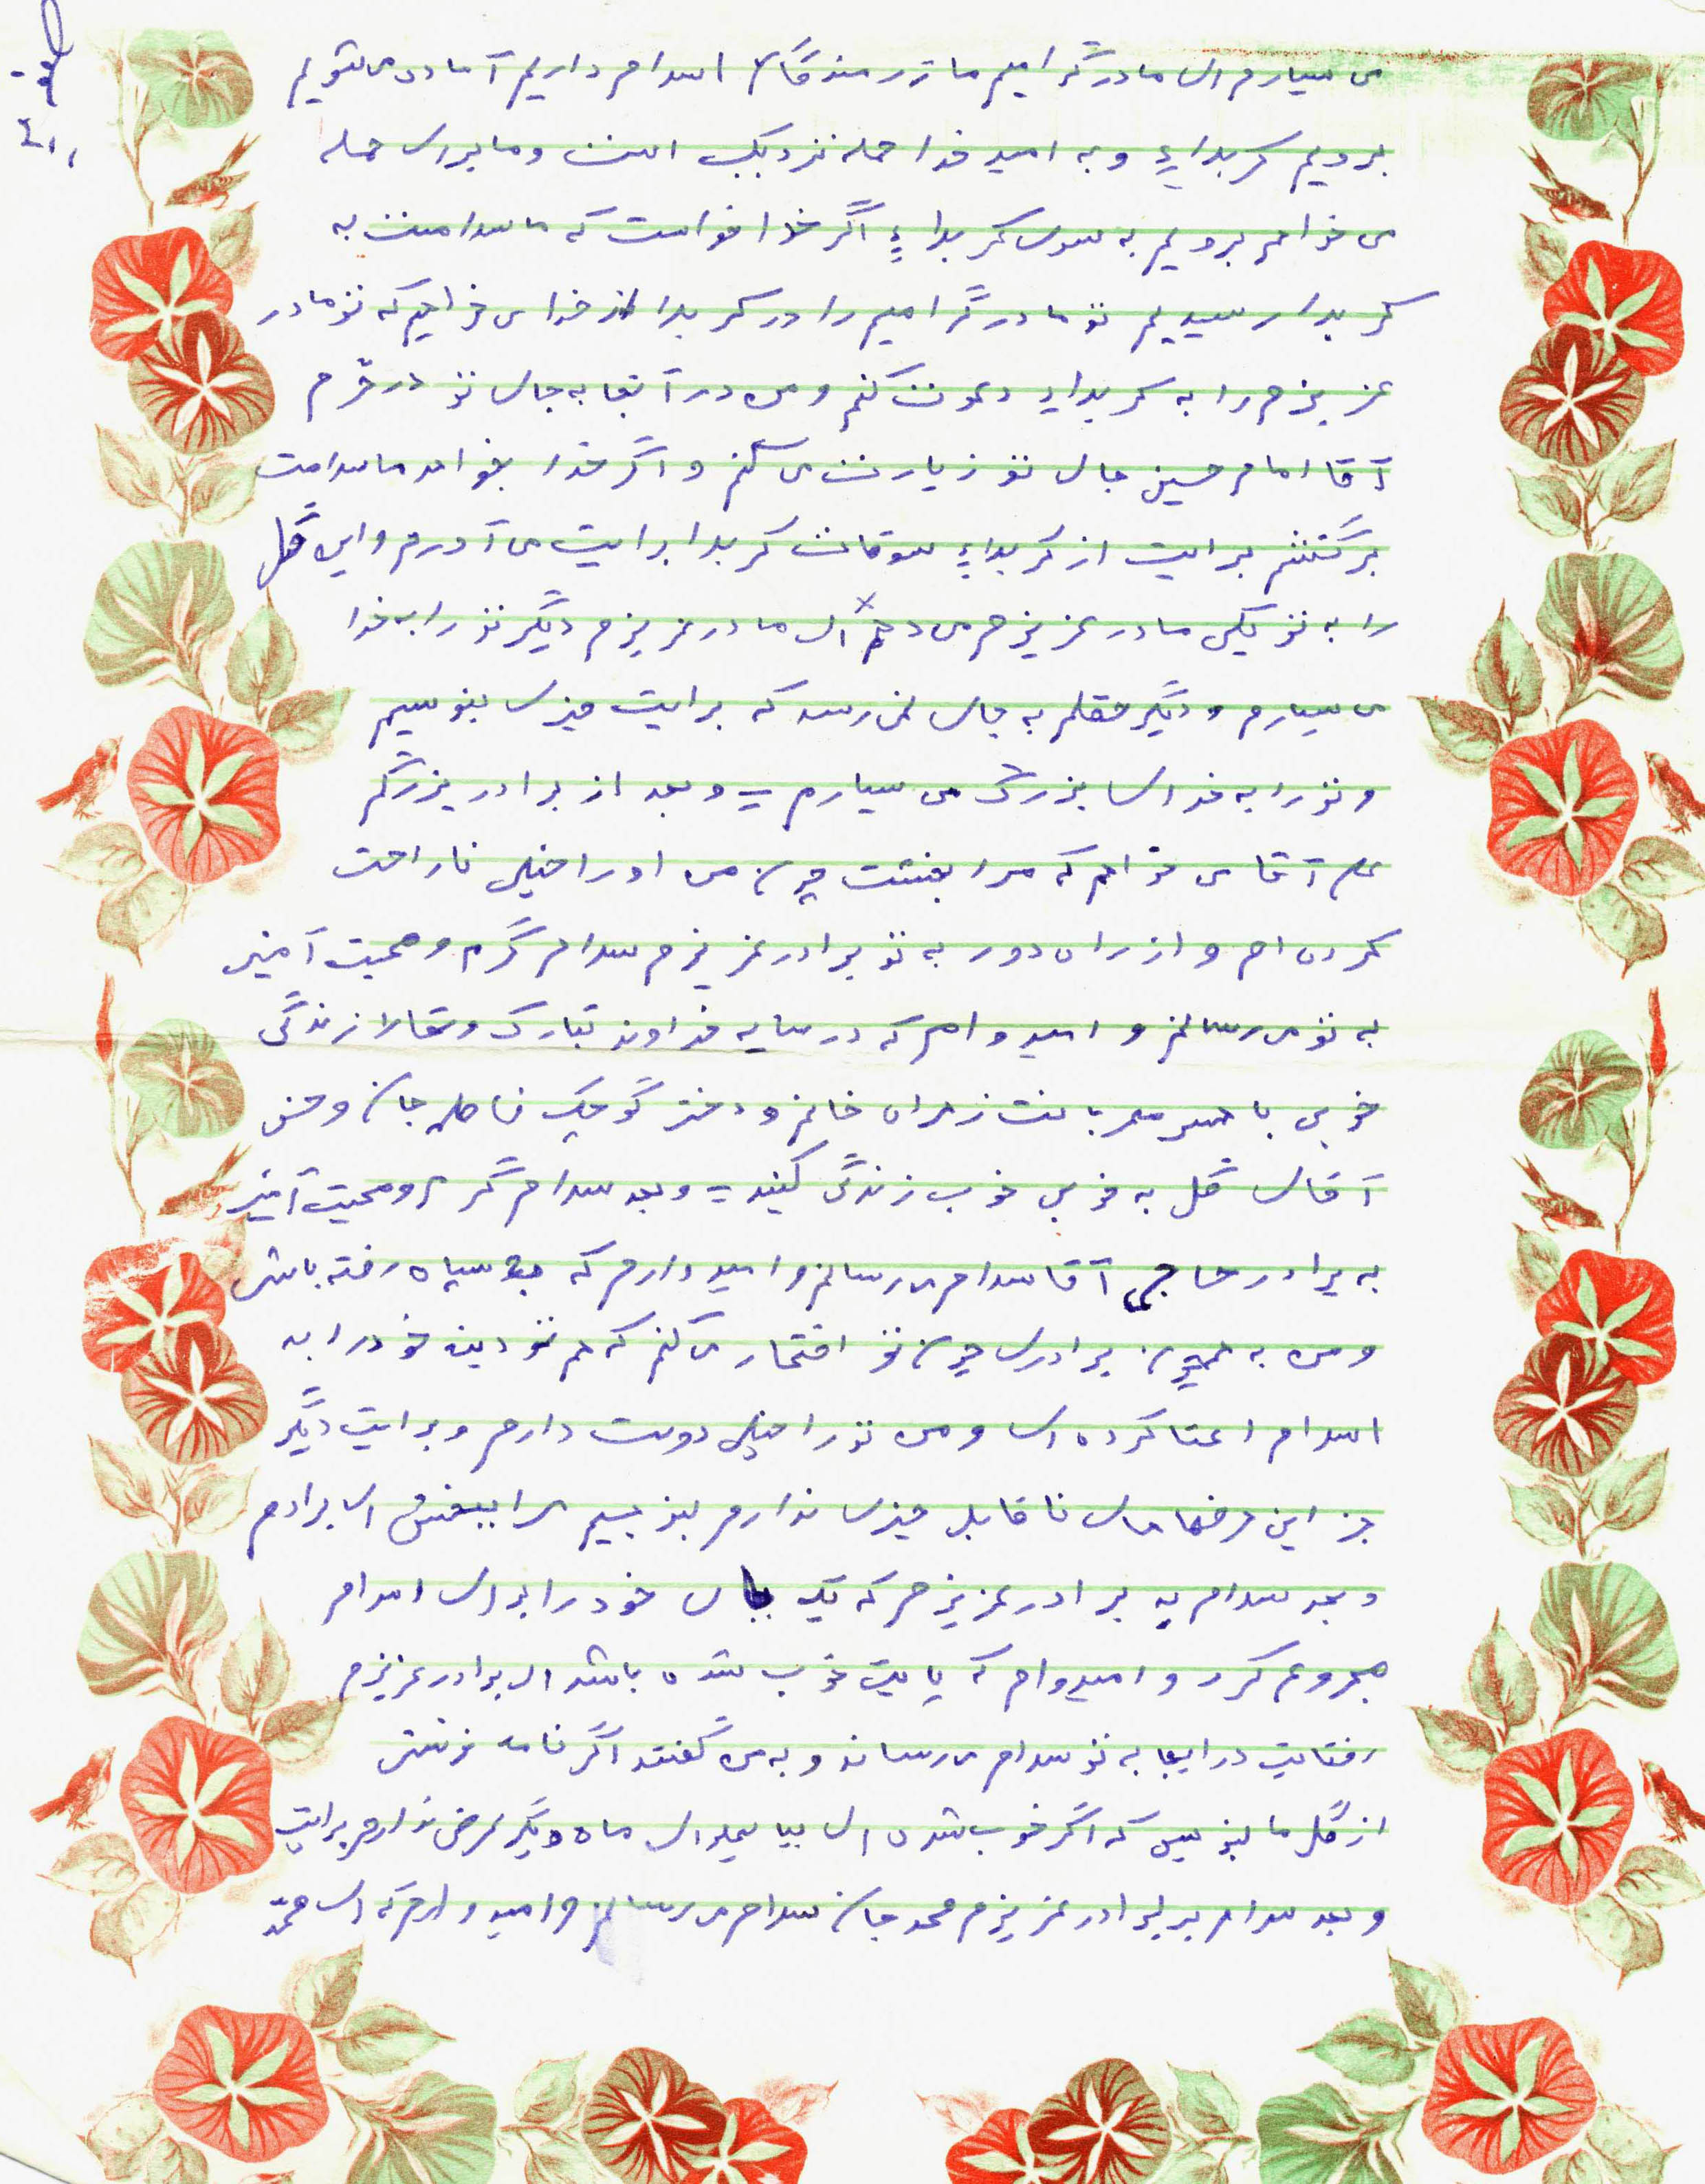 می سپارم ای مادر گرامیم ما رزمندگان اسلام داریم آماده می شویم
برویم کربلاءِ و به امید خدا حمله نزدیک است و ما برای حمله
می خواهم برویم به سوی کربلاءِ اگر خدا خواست که ما سلامت به
کربلا رسیدیم تو مادر گرامیم را در کربلا از خدا می خواهیم که تو مادر
عزیزم را به کربلاء دعوت کنم و من در آنجا به جای تو در حرم
آقا امام حسین جای تو زیارت می کنم و اگر خدا بخواهد ما سلامت
برگشتم برایت از کربلاءِ سوقات کربلا برایت می آورم و این گل
را به تو یکی مادر عزیزم می دهم ای مادر عزیزم دیگر تو را به خدا
می سپارم و دیگر عقلم به جای نمی رسد که برایت چیزی بنویسم
و تو را به خدای بزرگ می سپارم = و بعد از برادر بزرگم
علی آقا می خواهم که مرا ببخشد چون من او را خیلی ناراحت
کرده ام و از راه دور به تو برادر عزیزم سلام گرم و محبت آمیز
به تو می رسانم و امیدوام که در سایه خداوند تبارک و تعالا زندگی
خوبی با همسر مهربانت زهرا خانم و دختر کوچک فاطمه جان و حسن
آقای گل به خوبی خوب زندگی کنید = و بعد سلام گرم و محبت آمیز
به برادر حاجی آقا سلام می رسانم و امید دارم که به سپاه رفته باشی
و من به همچون برادری چون تو افتخار می کنم که هم تو دین خود را به
اسلام اعتا کرده ای و من تو را خیلی دوست دارم و برایت دیگر
جز این حرفها های ناقابل چیزی ندارم بنویسم مرا ببخش ای برادرم
و بعد سلام به برادر عزیزم که یک پای خود را برای اسلام
مجروعم کرد و امیدوام که پایت خوب شده باشد ای برادر عزیزم
رفقایت در اینجا به تو سلام می رساند و به من گفتند اگر نامه نوشتی
از گل ما بنویس که اگر خوب شده ای بیا دیگر عرض ندارم برایت
و بعد سلام بر برادر عزیزم محمد جان سلام می رسانم و امیدوارم که ای محمّد